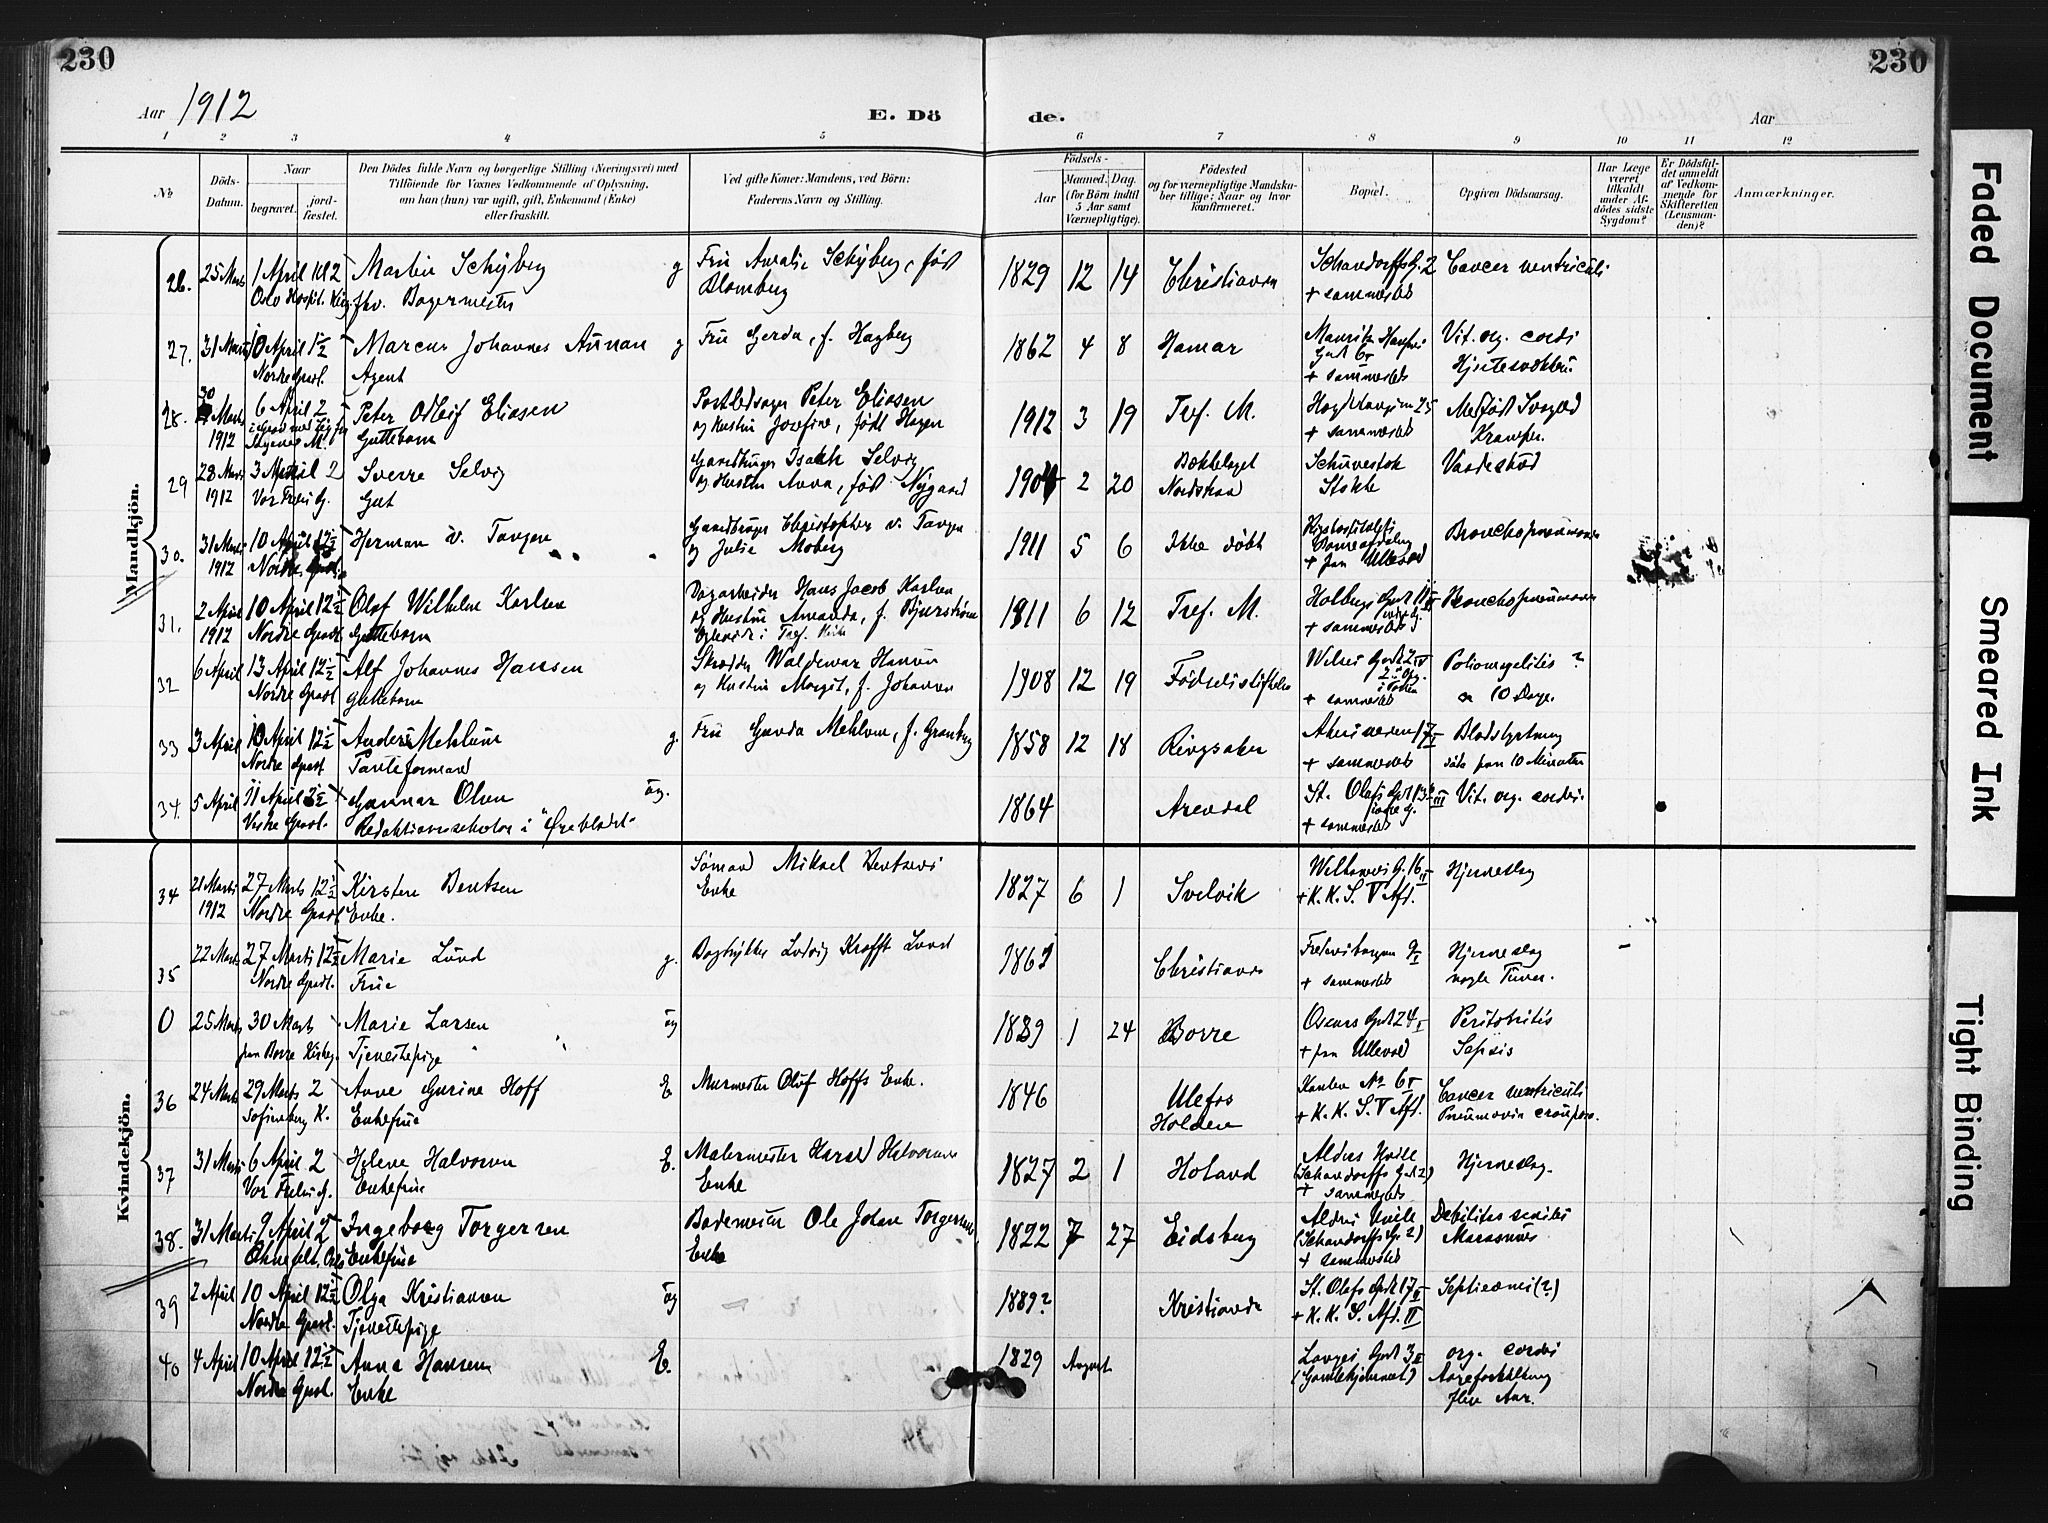 230
230
Aar 1912
E. Dö
de.
Aar
1 2 3 4 5 6 7 8 9 10 11 12
№
Döds-
Datum.
Naar
begravet.
jord-
fæstet.
Den Dödes fulde Navn og borgerlige Stilling (Næringsvei) med
Tilföiende for Voxnes Vedkommende af Oplysning,
om han (hun) var ugift, gift, Enkemand (Enke)
eller fraskilt.
Ved gifte Koner: Mandens, ved Börn:
Faderens Navn og Stilling.
Födsels-
Aar
Maaned. Dag.
(for Börn indtil
5 Aar samt
Værnepligtige).
Födested
og for værnepligtige Mandska-
ber tillige: Naar og hvor
konfirmeret.
Bopæl.
Opgiven Dödsaarsag.
Har Læge
været
tilkaldt
under Af-
dödes sidste
Sygdom?
Er Dödsfal-
det anmeldt
af Vedkom-
mende for
Skifteretten
(Lensman-
den)?
Anmærkninger.
Mandkjön.
26. 25 Marts 1 April Martin Schyberg g Fru Amalie Schyberg, født 1829 12 14 Christiania Schandorffs G. 2 Cancer ventriculi
Oslo Hospit. fhv. Bagermester Blomberg + sammesteds
27. 31 Marts 10 April 1½ Marcus Johannes Aunan g Fru Gerda, f. Hagberg 1862 4 8 Hamar Vit. org. cordi
Nordre Gravl. Agent + sammesteds
28. 30 Marts 6 April 2 Peter Odleif Eliasen Postbudsager Peter Eliasen 1912 3 19 Tref. M.
1912 Guttebarn og Hustru Josefine, født Hagen + sammesteds Kramper.
29 28 Marts 3 April 2 Sverre Selvig Gaardbruger Isak Selvig 1904 2 20 Bækkelaget
1912 Vor Frels G. Gut og Hustru Anna, født Nygaard Nordstrand Stokke
30. 31 Marts 10 April 12½ Herman v. Tangen Gaardbruger Christopher v. Tangen 1911 5 6 Ikke døbt Bronchopneumoni
1912 Nordre Gravl. og Julie Moberg + paa Ullevaal
31. 2 April 10 April 12½ Olaf Wilhelm Karlsen Dagarbeider Hans Jacob Karlsen 1911 6 12 Tref. M. Holbergs Gade 11 Bronchopneumoni
1912 Nordre Gravl. Guttebarn og Hustru Amanda, f. Bjurstrøm + sammesteds
32 6 April 13 April 12½ Alf Johannes Hansen Skrædder Waldemar Hansen 1908 12 19 Fødselsstiftelsen Poliomyelitis ?
Nordre Gravl Guttebarn og Hustru Margit, f. Johansen + sammesteds ca 10 Dage.
33 3 April 10 April 12½ Anders Mehlum g. Fru Gunda Mehlum, f. Granberg 1858 12 18 Ringsaker Akersveien 17 Blodstyrtning
Nordre Gravl + sammesteds døde paa 10 Minutter
34. 5 April 11 April Gunnar Olsen ug. 1864 Arendal St. Olafs Gade Vit. org. cordis.
Vestre Gravl. Redaktionssekretær i "Ørebladet" + sammesteds
Kvindekjön.
34 21 Marts 27 Marts 12½ Kirsten Bentsen Sømand Mikael Bentsens 1827 6 1 Svelvik Hjerneslag
1912 Nordre Gravl Enke. Enke + K. K. S. V Afd.
35 22 Marts 27 Marts 12½ Marie Lund g. Bogtrykker Ludvig Krafft Lund Christiania Hjerneslag
Nordre Gravl. Frue + sammesteds nogle Timer.
0 25 Marts 30 Marts Marie Larsen ug 1889 1 24 Borre Oscars Gade 24 Peritonitis
paa Borre Kirkeg. Tjenestepige + paa Ullevaal Sepsis
36 24 Marts 29 Marts 2 Anne Gurine Hoff E Murmester Oluf Hoffs Enke. 1846 Ulefos Cancer ventriculi
Sofienberg K. Enkefrue Holden + K. K. S. V Afd. Pneumonia croupøs.
37 31 Marts 6 April 2 Helene Halvorsen E. Malermester Harald Halvorsens 1827 2 1 Høland Aldershvile Hjerneslag.
Vor Frels G. Enkefrue Enke (Schandorffs Gade 2)
+ sammesteds
38. 31 Marts 9 April 2 Ingeborg Torgersen Bademester Ole Johan Torgersens 1822 7 27 Eidsberg Alders Hvile Debilitas senilis
Enkefrue Enke (Schandorffs G. 2) Marasmus
+ sammesteds
39 2 April 10 April 12½ Olga Kristiansen ug 1889? Kristiania St. Olafs Gade 17 Septicæmi (?)
Nordre Gravl. Tjenestepige + K. K. S. Afd. II
40 4 April 10 April 12½ Anna Hansen E. 1829 August Langes Gade 3 org. cordis
Nordre Gravl. Enke (Gamlehjemmet) Aareforkalkning
flere Aar.
Faded Document
Smeared Ink
Tight Binding